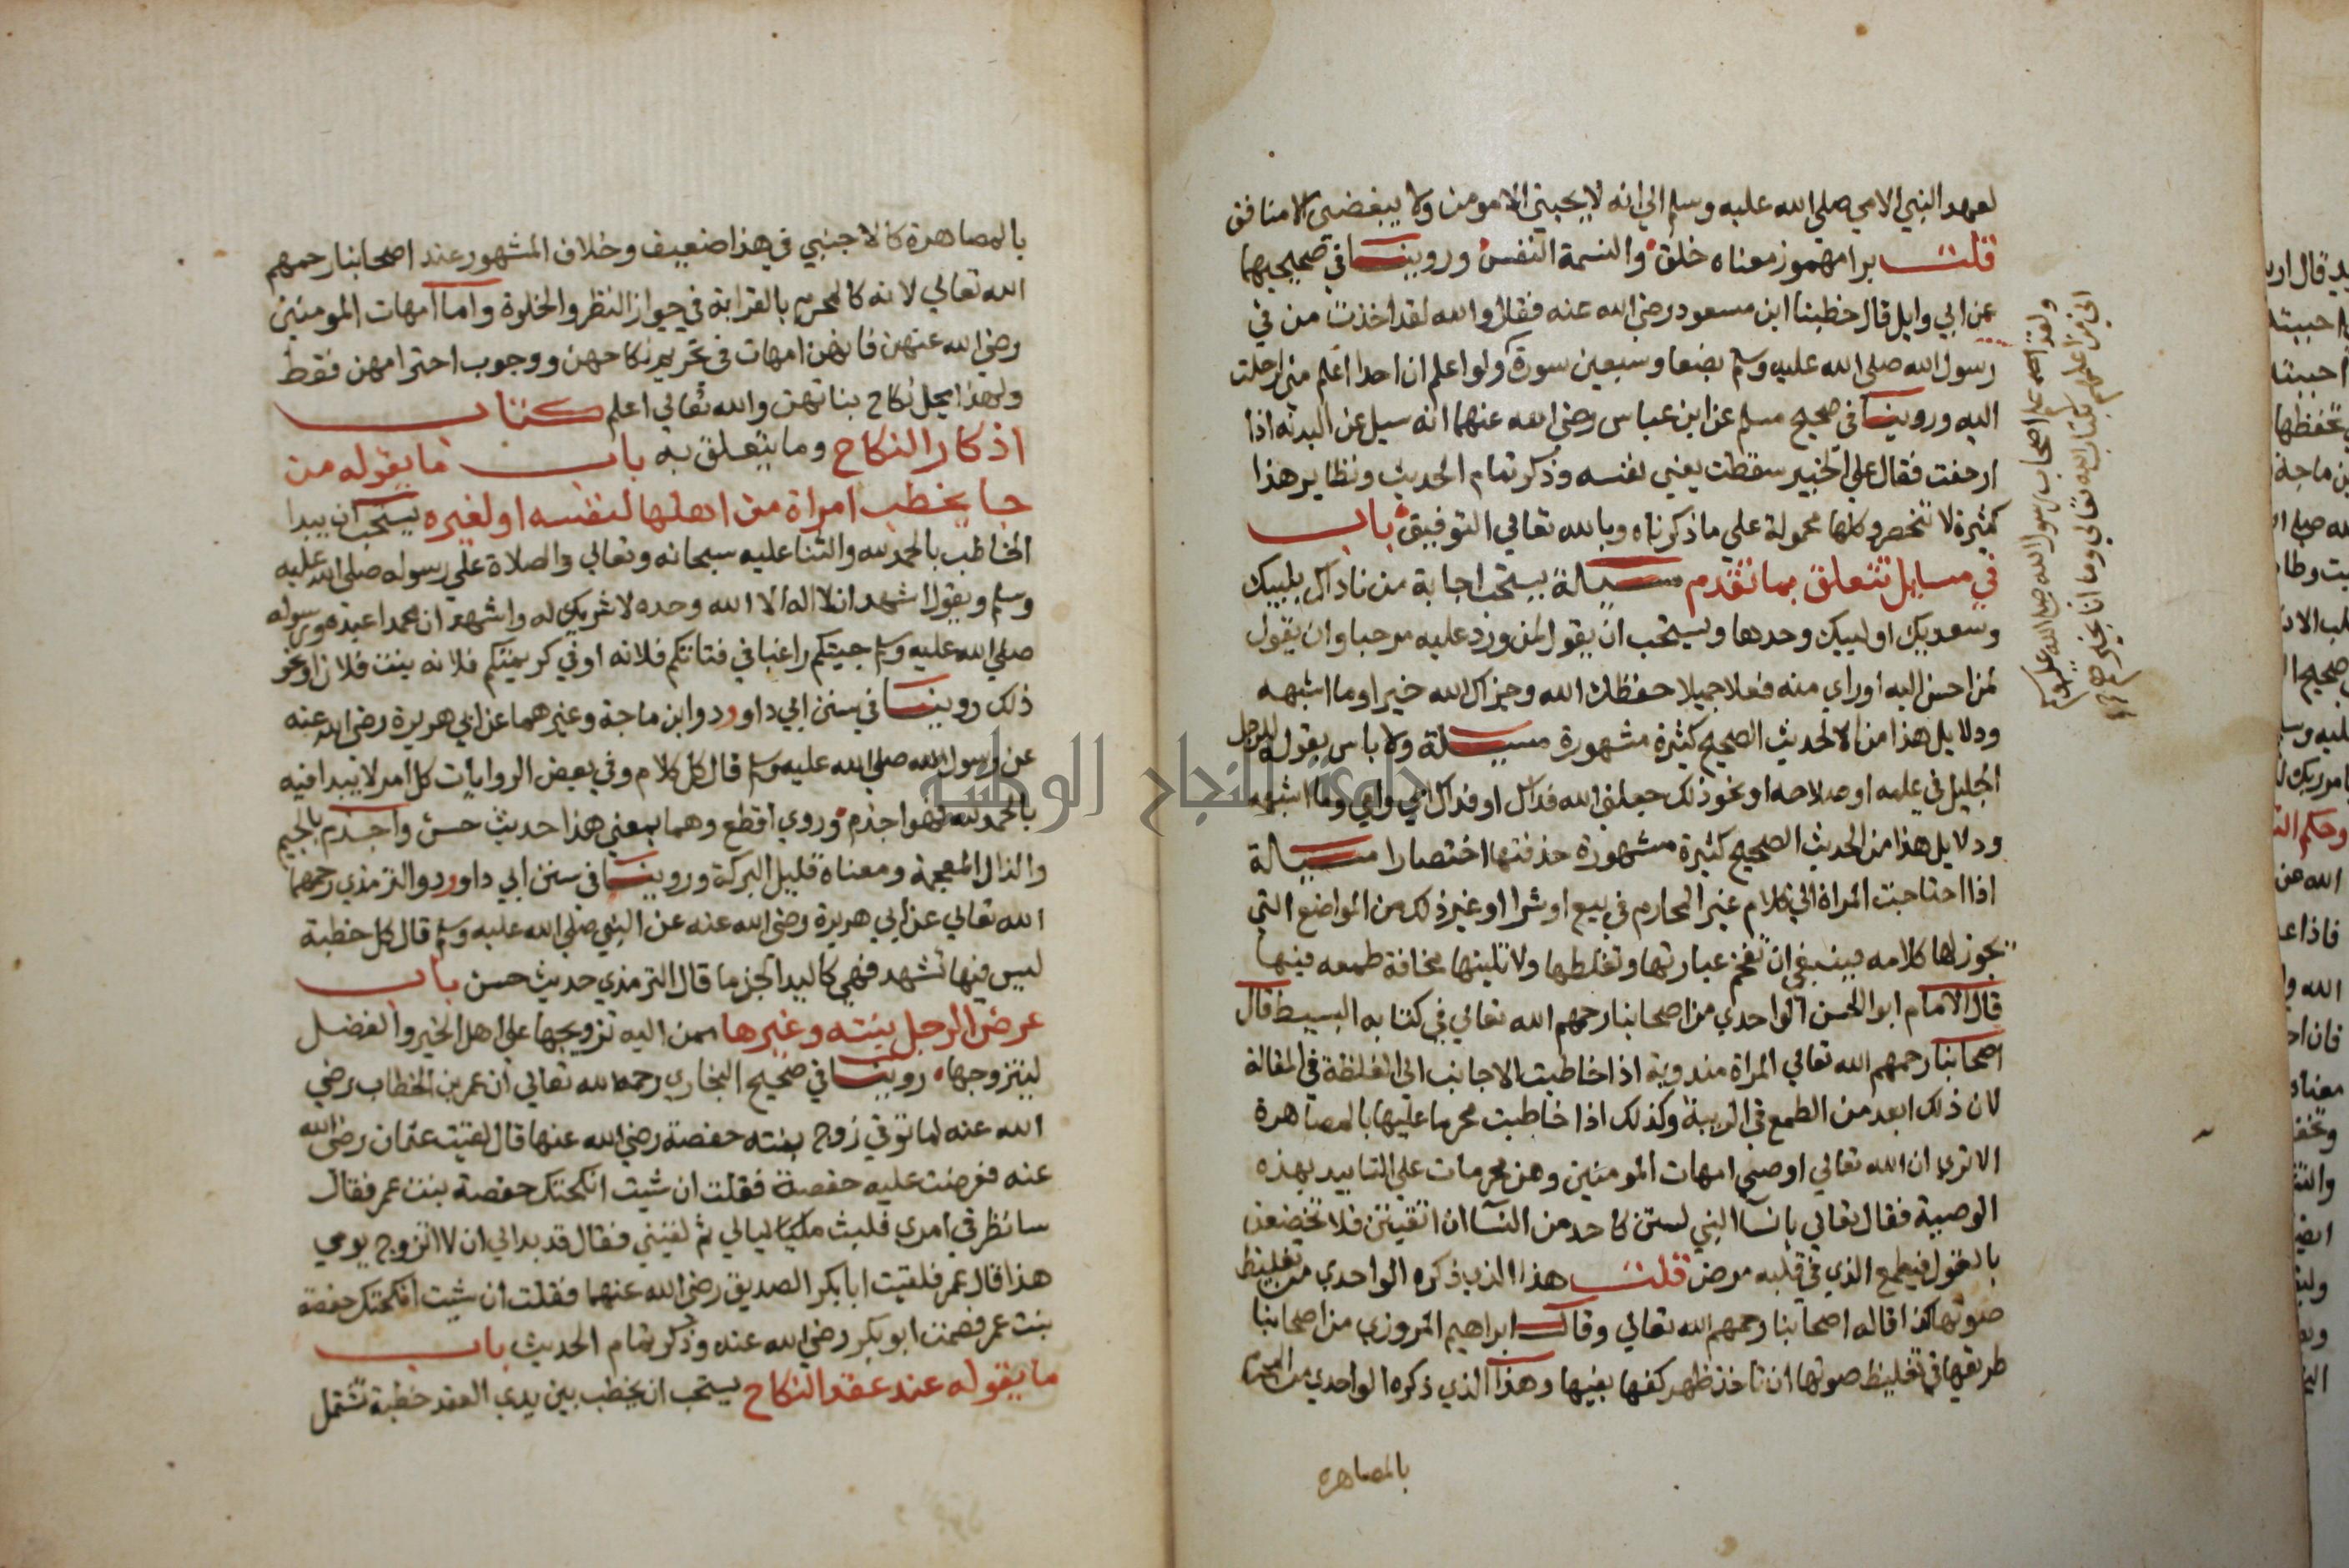 لعهد النبي الامي صلى الله عليه وسلم الي انه لا يحبني الا مومن ولا يبغضني الا منافق
قلت برا مهموز معناه خلق والنسمة النفس وروينا في صحيحيهما
عن ابي وايل قال خطبنا ابن مسعود رضي الله عنه فقال والله لقد اخذت من في
رسول الله صلى الله عليه وسلم بضعا وسبعين سورة ولو اعلم ان احدا اعلم مني لرحلت
اليه وروينا في صحيح مسلم عن ابن عباس رضي الله عنهما انه سيل عن البدنه اذا
ازحفت فقال على الخبير سقطت يعني نفسه وذكر تمام الحديث ونظاير هذا
كثيرة لا تنحصر وكلها محمولة علي ما ذكرناه وبالله تعالي التوفيق باب
في مسايل تتعلق بما تقدم مسيلة يستحب اجابة من ناداك بلبيك
وسعديك او لبيك وحدها ويستحب ان يقول لمن ورد عليه مرحبا وان يقول
لمن احسن اليه او راي منه فعلا جميلا حفظك الله وجزاك الله خيرا وما اشبهه
ودلايل هذا من الحديث الصحيح كثيرة مشهورة مسيلة ولا باس بقوله للرجل
الجليل في علمه او صلاحه او نحو ذلك جعلني الله فداك او فداك ابي وامي وما اشبهه
ودلايل هذا من الحديث الصحيح كثيرة مشهورة حذفتها اختصارا مسيلة
اذا احتاجت المراة الي كلام غير المحارم في بيع او شرا او غير ذلك من المواضع التي
يجوز لها كلامه فينبغي ان تفخم عبارتها وتغلظها ولا تلينها مخافة طمعه فيها
قال الامام ابو الحسن الواحدي من اصحابنا رحمهم الله تعالي في كتابه البسيط قال
اصحابنا رحمهم الله تعالي المراة مندوبة اذا خاطبت الاجانب الى الغلظة في المقالة
لان ذلك ابعد من الطمع في الريبة وكذلك اذا خاطبت محرما عليها بالمصاهرة
الا ترى ان الله تعالي اوصي امهات المومنين وهن محرمات علي التابيد بهذه
الوصية فقال تعالي يا نسآ النبي لستن كاحد من النسآ ان اتقيتن فلا تخضعن
بالقول فيطمع الذي في قلبه مرض قلت هذا الذي ذكره الواحدي من تغليظ
صوتها كذا قاله اصحابنا رحمهم الله تعالي وقال ابراهيم المروزي من اصحابنا
طريقها في تغليظ صوتها ان تاخذ ظهر كفها بفيها وهذا الذي ذكره الواحدي من ان المحرم
بالمصاهره
ولقد علم اصحاب رسول الله صلى الله عليه وسلم
اني من اعلمهم بكتاب الله تعالي وما انا بخيرهم
بالمصاهرة كالاجنبي في هذا ضعيف وخلاف المشهور عند اصحابنا رحمهم
الله تعالي لانه كالمحرم بالقرابة في جواز النظر والخلوة واما امهات المومنين
رضي الله عنهن فانهن امهات في تحريم نكاحهن ووجوب احترامهن فقط
ولهذا يحل نكاح بناتهن والله تعالي اعلم كتاب
اذكار النكاح وما يتعلق به باب ما يقوله من
جا يخطب امراة من اهلها لنفسه او لغيره يستحب ان يبدا
الخاطب بالحمد لله والثنا عليه سبحانه وتعالي والصلاة علي رسوله صلى الله عليه
وسلم ويقول اشهد ان لا اله الا الله وحده لا شريك له واشهد ان محمدا عبده ورسوله
صلى الله عليه وسلم جيتكم راغبا في فتاتكم فلانه او في كريمتكم فلانه بنت فلان او نحو
ذلك روينا في سنن ابي داود وابن ماجة وغيرهما عن ابي هريرة رضي الله عنه
عن رسول الله صلى الله عليه وسلم قال كل كلام وفي بعض الروايات كل امر لا يبدا فيه
بالحمد لله فهو اجذم وروي اقطع وهما بمعني هذا حديث حسن واجذم بالجيم
والذال المعجمة ومعناه قليل البركة وروينا في سنن ابي داود والترمذي رحمهما
الله تعالي عن ابي هريرة رضي الله عنه عن النبي صلى الله عليه وسلم قال كل خطبة
ليس فيها تشهد فهي كاليد الجذما قال الترمذي حديث حسن باب
عرض الرجل بنته وغيرها ممن اليه تزويجها على اهل الخير والفضل
ليتزوجها روينا في صحيح البخاري رحمه الله تعالي ان عمر بن الخطاب رضي
الله عنه لما توفي زوج بنته حفصة رضي الله عنها قال لقيت عثمان رضي الله
عنه فعرضت عليه حفصة فقلت ان شيت انكحتك حفصة بنت عمر فقال
سانظر في امري فلبثت ليالي ثم لقيني فقال قد بدا لي ان لا اتزوج يومي
هذا قال عمر فلقيت ابا بكر الصديق رضي الله عنهما فقلت ان شيت انكحتك حفصة
بنت عمر فصمت ابو بكر رضي الله عنه وذكر تمام الحديث باب
ما يقوله عند عقد النكاح يستحب ان يخطب بين يدي العقد خطبة تشتمل